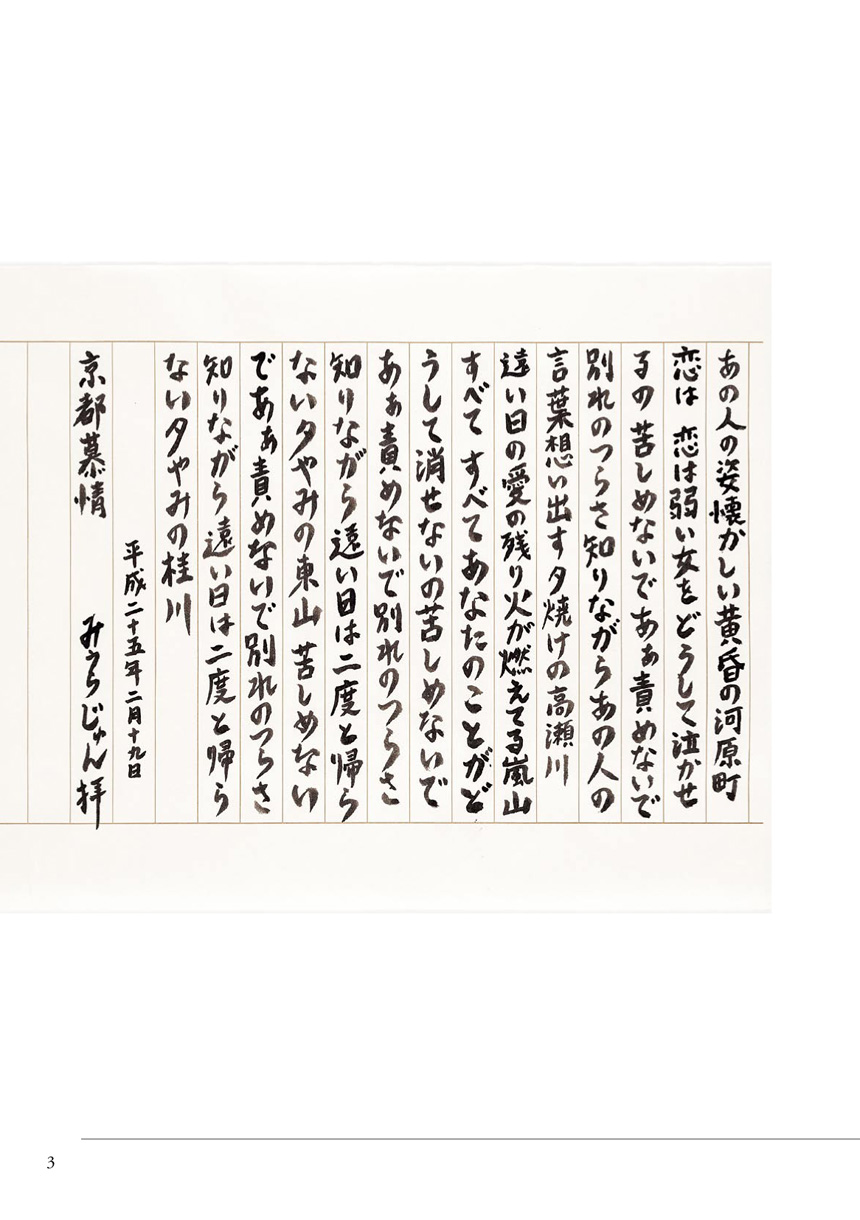 あの人の姿懐かしい黄昏の河原町
恋は 恋は弱い女をどうして泣かせ
るの 苦しめないであぁ責めないで
別れのつらさ知りながらあの人の
言葉想い出す夕焼けの高瀬川
遠い日の愛の残り火が燃えてる嵐山
すべて すべてあなたのことがど
うして消せないの苦しめないで
あぁ責めないで別れのつらさ
知りながら遠い日は二度と帰ら
ない夕やみの東山 苦しめない
であぁ責めないで別れのつらさ
知りながら遠い日は二度と帰ら
ない夕やみの桂川
平成二十五年二月十九日
京都慕情 みうらじゅん拝
3